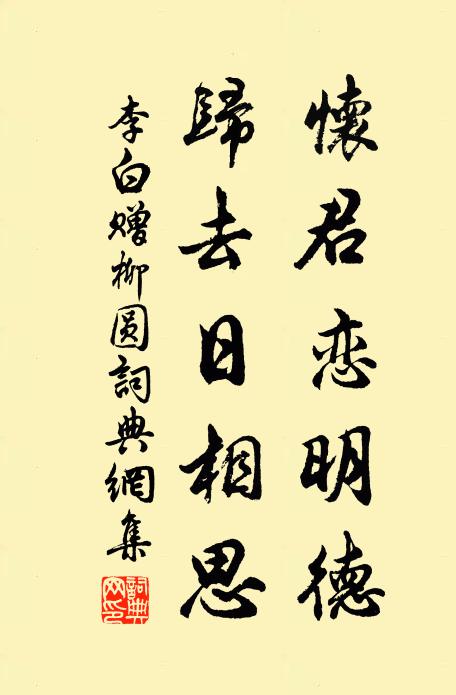 懷君恋明德
歸去日相思
李白赠柳圆詞典網集
詞典网印